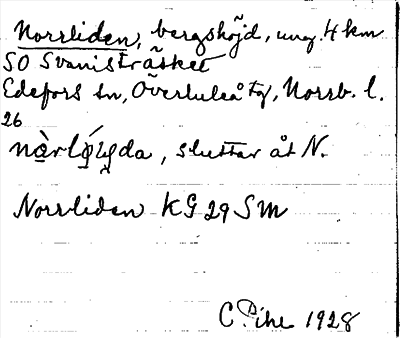 Norrliden, bergshöjd, ung. 4 km
SO Svanisträsket
Edefors sn, Överluleå tg, Norrb. l.
26
, sluttar åt N.
Norrliden KG 29 SM
C. Pihl 1928